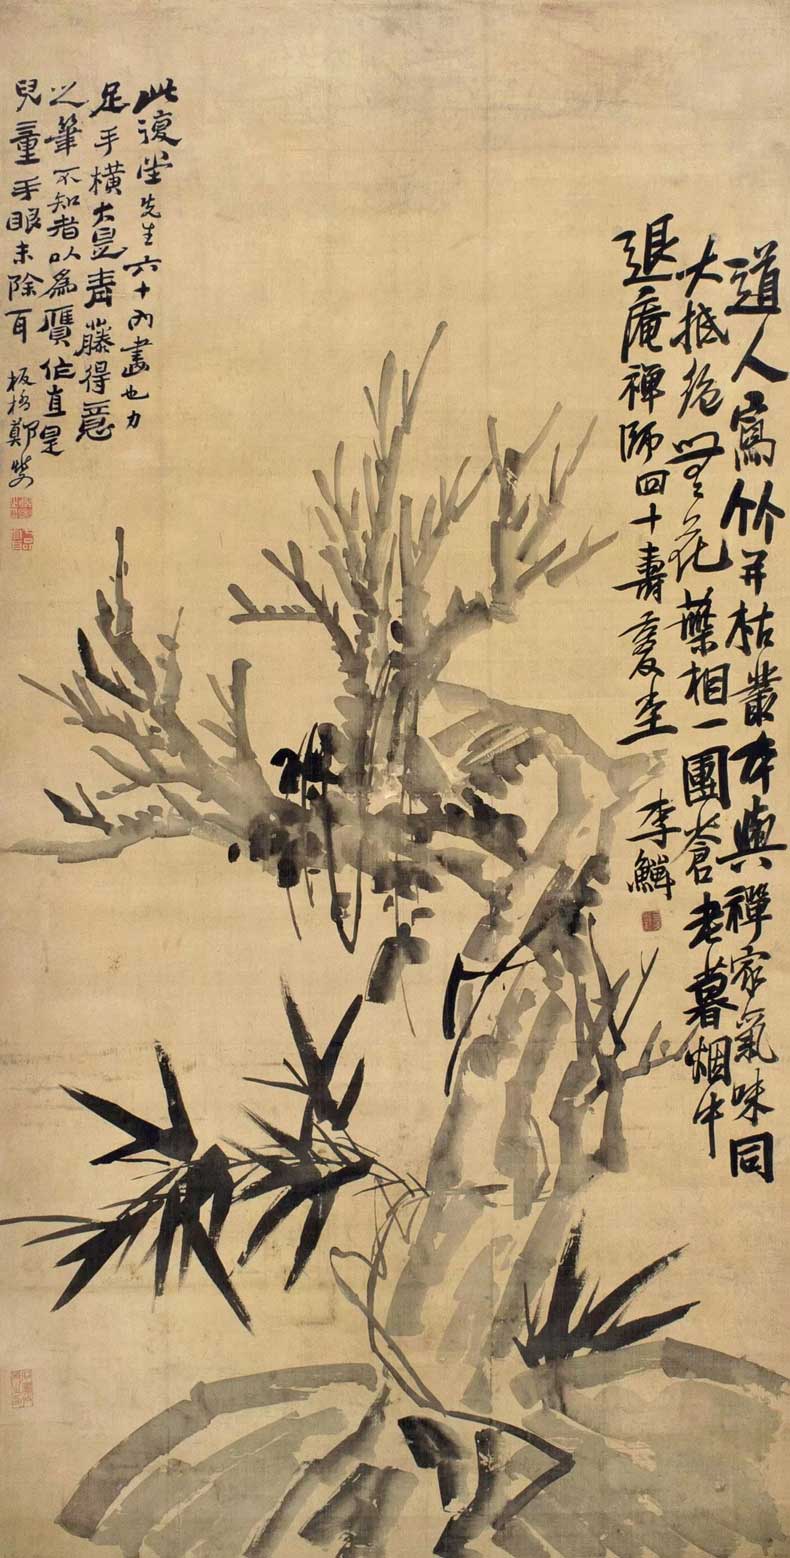 道人寫竹并枯叢與禪家氣味同
大抵絕無花葉相一團蒼老暮烟中
退庵禪師四十壽 復堂 李鱓
此復堂先生六十內畫也力
足手橫大是青藤得意
之筆不知者以為贋作直是
兒童手眼未除耳 板橋鄭燮